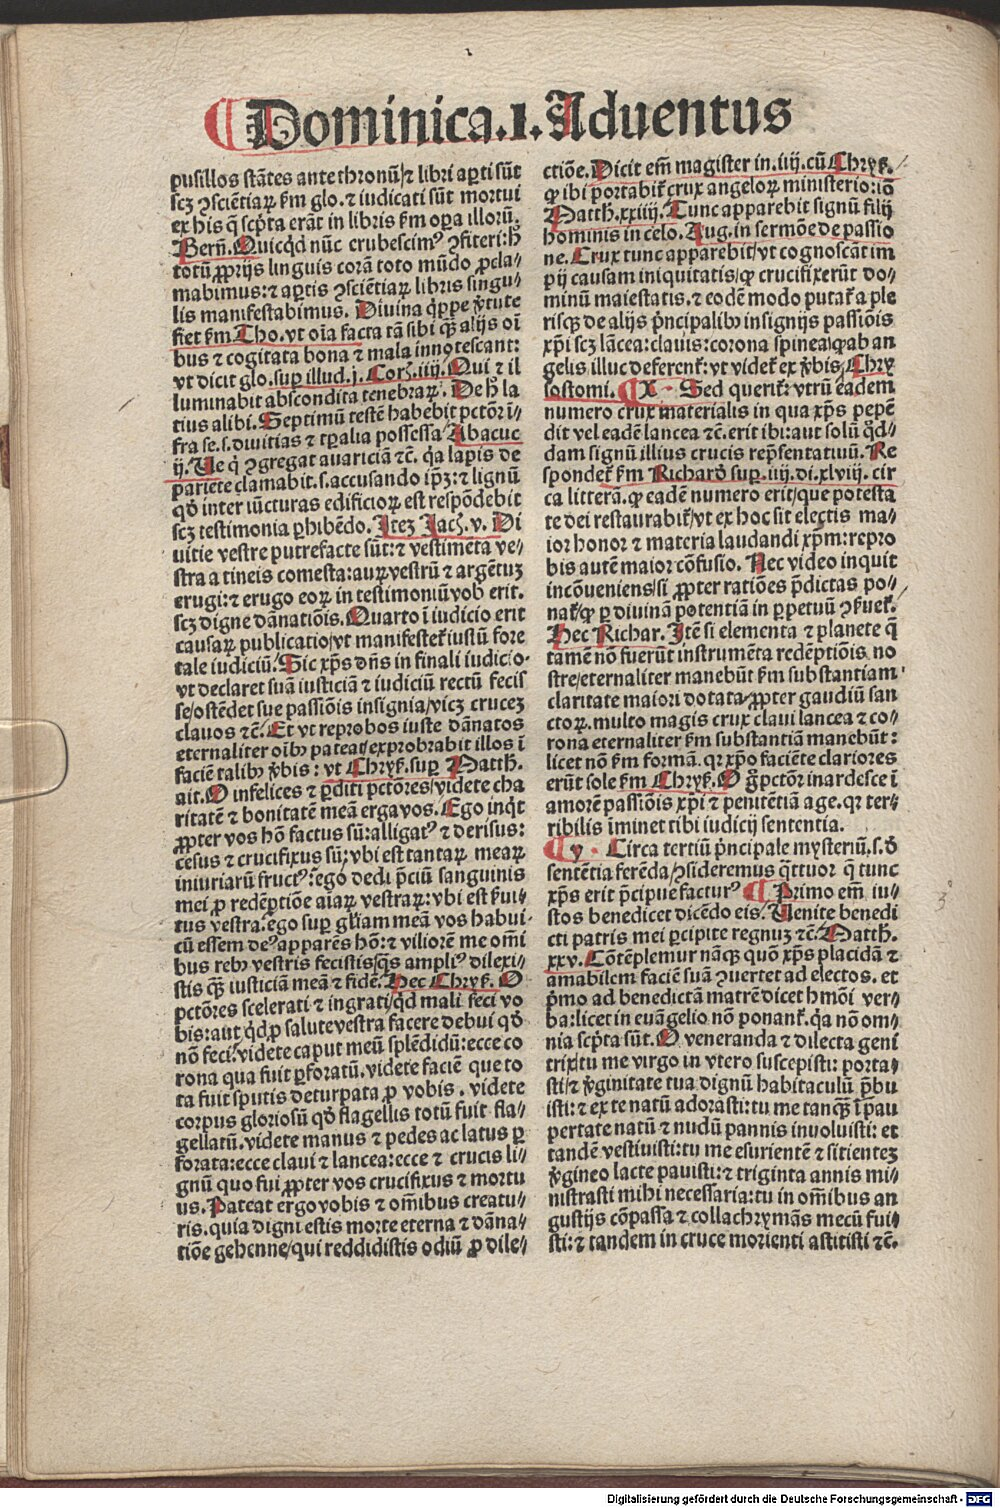 Dominica.1.Aduentus
pusillos stātes ante thronū/⁊ libri aꝑti sūt
scꝫ ꝯsciētiaꝝ ẜm glo. ⁊ iudicati sūt mortui
ex his q̄ scp̄ta erāt in libris ẜm oꝑa illorū.
Berñ. Quicq̇d nūc crubescimꝰ ꝯfiteri: ħ
totū ꝓprijs linguis corā toto mūdo ꝓcla⸗
mabimus: ⁊ aꝑtis ꝯsciētiaꝝ libris singu⸗
lis manifestabimus. Diuina q̇ppe v̓tute
fiet ẜm Tho. vt oīa facta tā sibi qꝫ̄ alijs oī
bus ⁊ cogitata bona ⁊ mala innotescant:
vt dicit glo. suꝑ illud. j. Corꝭ. iiij. Qui ⁊ il
luminabit abscondita tenebraꝝ. De ħ la
tius alibi. Septimū testē habebit pctōr ī⸗
fra se. s. diuitias ⁊ tꝑalia possessa Abacuc
ij. Ue q̇ ꝯgregat auariciā ⁊c̄. q̇a lapis de
pariete clamabit. s. accusando ip̄ꝫ: ⁊ lignū
qd̓ inter iūcturas edificioꝝ est respōdebit
scꝫ testimonia ꝑhibēdo. Iteꝫ Jacꝭ. v. Di
uitie vestre putrefacte sūt: ⁊ vestimēta ve⸗
stra a tineis comesta: auꝝ vestrū ⁊ argētuꝫ
erugi: ⁊ erugo eoꝝ in testimoniū vob erit.
scꝫ digne dānatiōis. Quarto ī iudicio erit
causaꝝ publicatio/vt manifestet̄ iustū fore
tale iudiciū. Sic xp̄s dn̄s in finali iudicio
vt declaret suā iusticiā ⁊ iudiciū rectū fecis
se/ostēdet sue passiōis insignia/vicꝫ cruceꝫ
clauos ⁊c̄. Et vt reprobos iuste dānatos
eternaliter oībꝰ pateat/exprobrabit illos ī
faciē talibꝰ v̓bis: vt Chryꝭ. suꝑ Matth.
ait. O infelices ⁊ ꝑditi pctōres/videte cha
ritatē ⁊ bonitatē meā erga vos. Ego inq̇t
ꝓpter vos hō factus sū: alligatꝰ ⁊ derisus:
cesus ⁊ crucifixus sū; vbi est tantaꝝ meaꝝ
iniuriarū fructꝰ: ego dedi p̄ciū sanguinis
mei ꝓ redēptiōe aīaꝝ vestraꝝ: vbi est ẜui⸗
tus vestra: ego suꝑ gl̄iam meā vos habui
cū essem deꝰ: apparēs hō: ⁊ viliorē me om̄i
bus rebꝰ vestris fecistis/qꝫ̄s ampliꝰ dilexi⸗
stis qꝫ̄ iusticiam meā ⁊ fidē. Hec Chryꝭ. O
pctōres scelerati ⁊ ingrati/qd̓ mali feci vo
bis: aut qd̓ ꝓ salute vestra facere debui qd̓
nō feci: videte caput meū splēdidū: ecce co
rona qua fuit ꝑforatū. videte faciē que to
ta fuit sputis deturpata ꝓ vobis. videte
corpus gloriosū qd̓ flagellis totū fuit fla⸗
gellatū. videte manus ⁊ pedes ac latus ꝑ
forata: ecce claui ⁊ lancea: ecce ⁊ crucis li⸗
gnū quo fui ꝓpter vos crucifixus ⁊ mortu
us. Pateat ergo vobis ⁊ om̄ibus creatu⸗
ris. quia digni estis morte eterna ⁊ dāna⸗
tiōe gehenne/qui reddidistis odiū ꝓ dile⸗
ctiōe. Dicit em̄ magister in. iiij. cū Chryꝭ.
ꝙ ibi portabit̄ crux angeloꝝ ministerio: iō
Matth. xxiiij. Tunc apparebit signū filij
hominis in celo. Aug. in sermōe de passio
ne. Crux tunc apparebit/vt cognoscāt im
pij causam iniquitatis/ꝙ crucifixerūt do⸗
minū maiestatis. ⁊ eodē modo putat̄ a ple
risqꝫ de alijs p̓ncipalibꝰ insignijs passiōis
xp̄i scꝫ lācea: clauis: corona spinea/ꝙ ab an
gelis illuc deferent̄: vt videt̄ ex v̓bis Chry
sostomi. X. Sed querit̄: vtrū eadem
numero crux materialis in qua xp̄s pepē
dit vel eadē lancea ⁊c̄. erit ibi: aut solū q̄d⸗
dam signū illius crucis rep̄sentatiuū. Re
spondet̄ ẜm Richardꝰ suꝑ. iiij. di. xlviij. cir
ca litterā. ꝙ eadē numero erit/que potesta
te dei restaurabit̄/vt ex hoc sit electis ma⸗
ior honor ⁊ materia laudandi xp̄m: repro
bis autē maior cōfusio. Nec video inquit
incōueniens/si ꝓpter ratiōes p̄dictas po⸗
nat̄/ꝙ ꝑ diuinā potentiā in ꝑpetuū ꝯẜuet̄.
Hec Richar. Itē si elementa ⁊ planete q̄
tamē nō fuerūt instrumēta redēptiōis no
stre/eternaliter manebūt ẜm substantiam
claritate maiori dotata/ꝓpter gaudiū san
ctoꝝ. multo magis crux claui lancea ⁊ co⸗
rona eternaliter ẜm substantiā manebūt:
licet nō ẜm formā. qꝛ xp̄o faciēte clariores
erūt sole ẜm Chryꝭ. O g̊ pctōr inardesce ī
amorē passiōis xp̄i ⁊ penitētiā age. qꝛ ter⸗
ribilis īminet tibi iudicij sententia.
y. Circa tertiū p̓ncipale mysteriū. s. d̓
sentētia ferēda/ꝯsideremus q̇ttuor q̄ tunc
xp̄s erit p̓cipue facturꝰ Primo em̄ iu⸗
stos benedicet dicēdo eis. Uenite benedi
cti patris mei ꝑcipite regnuꝫ ⁊c̄. Matth.
xxv. Cōtēplemur nāqꝫ quō xp̄s placidā ⁊
amabilem faciē suā ꝯuertet ad electos. et
p̓mo ad benedictā matrē dicet hmōi ver⸗
ba: licet in euāgelio nō ponant̄. q̇a nō om⸗
nia scp̄ta sūt. O veneranda ⁊ dilecta geni
trix/tu me virgo in vtero suscepisti: porta⸗
sti/⁊ v̓ginitate tua dignū habitaculū p̄bu
isti: ⁊ ex te natū adorasti: tu me tanqꝫ̄ ī pau
pertate natū ⁊ nudū pannis inuoluisti: et
tandē vestiuisti: tu me esurientē ⁊ sitienteꝫ
v̓gineo lacte pauisti: ⁊ triginta annis mi⸗
nistrasti mihi necessaria: tu in om̄ibus an
gustijs cōpassa ⁊ collachrymās mecū fui⸗
sti: ⁊ tandem in cruce morienti astitisti ⁊c̄.
Digitalisierung gefördert durch die Deutsche Forschungsgemeinschaft - DFG